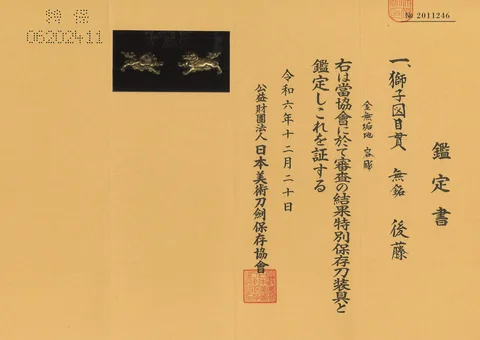 № 2011246
鑑定書
一、獅子図目貫 無銘 後藤
金無垢地 容彫
右は當協會に於て審査の結果特別保存刀装具と
鑑定しこれを証する
令和六年十二月二十日
公益財團法人 日本美術刀劍保存協會
特保
06202411